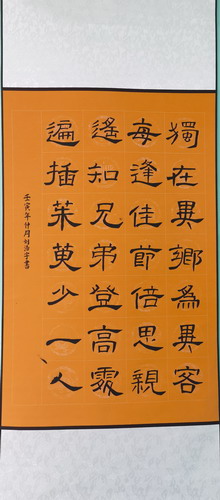 獨在異鄉為異客
每逢佳節倍思親
遙知兄弟登高處
遍插茱萸少一人
壬寅年 月 書